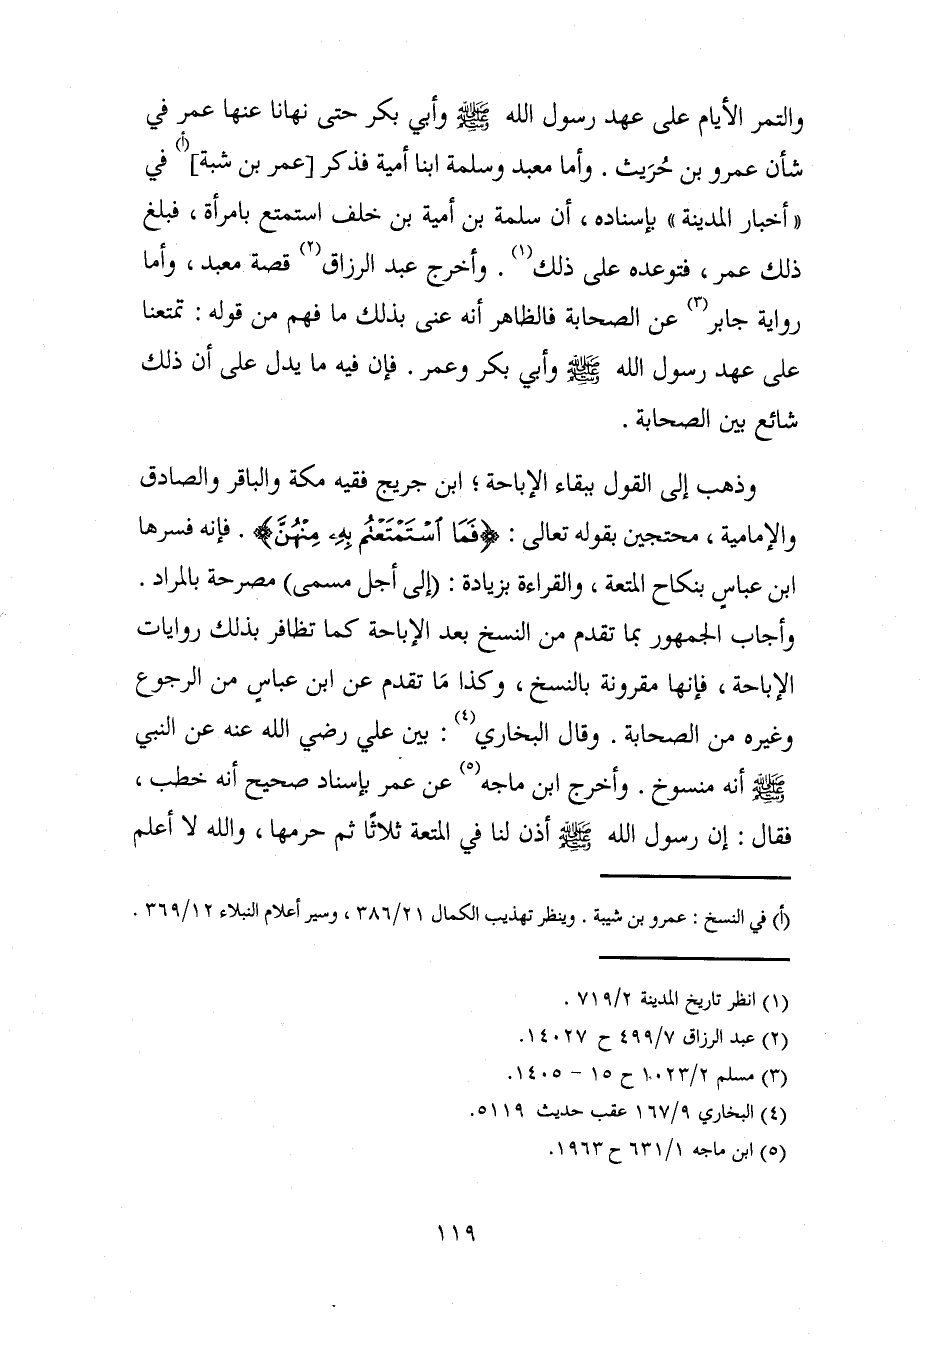 والتمر الأيام على عهد رسول الله ﷺ وأبي بكر حتى نهانا عنها عمر في
شأن عمرو بن حُرَيث . وأما معبد وسلمة ابنا أمية فذكر [عمر بن شبة](أ) في
« أخبار المدينة » بإسناده ، أن سلمة بن أمية بن خلف استمتع بامرأة ، فبلغ
ذلك عمر ، فتوعده على ذلك(١) . وأخرج عبد الرزاق(٢) قصة معبد ، وأما
رواية جابر(٣) عن الصحابة فالظاهر أنه عنى بذلك ما فهم من قوله : تمتعنا
على عهد رسول الله ﷺ وأبي بكر وعمر . فإن فيه ما يدل على أن ذلك
شائع بين الصحابة .
وذهب إلى القول ببقاء الإباحة ؛ ابن جريج فقيه مكة والباقر والصادق
والإمامية ، محتجين بقوله تعالى : ﴿فَمَا ٱسْتَمْتَعْتُم بِهِۦ مِنْهُنَّ﴾ . فإنه فسرها
ابن عباسٍ بنكاح المتعة ، والقراءة بزيادة : (إلى أجل مسمى) مصرحة بالمراد .
وأجاب الجمهور بما تقدم من النسخ بعد الإباحة كما تظافر بذلك روايات
الإباحة ، فإنها مقرونة بالنسخ ، وكذا مَا تقدم عن ابن عباسٍ من الرجوع
وغيره من الصحابة . وقال البخاري(٤) : بين علي رضي الله عنه عن النبي
ﷺ أنه منسوخ . وأخرج ابن ماجه(٥) عن عمر بإسناد صحيح أنه خطب ،
فقال : إن رسول الله ﷺ أذن لنا في المتعة ثلاثًا ثم حرمها ، والله لا أعلم
(أ) في النسخ : عمرو بن شيبة . وينظر تهذيب الكمال ٣٨٦/٢١ ، وسير أعلام النبلاء ٣٦٩/١٢ .
(١) انظر تاريخ المدينة ٧١٩/٢ .
(٢) عبد الرزاق ٤٩٩/٧ ح ١٤٠٢٧.
(٣) مسلم ١٠٢٣/٢ ح ١٥ - ١٤٠٥.
(٤) البخاري ١٦٧/٩ عقب حديث ٥١١٩.
(٥) ابن ماجه ٦٣١/١ ح ١٩٦٣.
١١٩